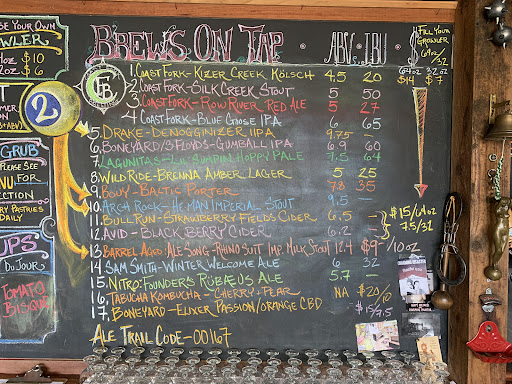 BE YOUR OWN
WLER
4oz $10
2oz $6
2
GRUB
PLEASE SEE
NU FOR
ECTION
RY PASTRIES
DAILY
UPS
DU JOURS
TOMATO
BISQUE
BREWS ON TAP · ABV · IBU ·
FILL YOUR
GROWLER
64oz/
32
64oz 32oz
$14 $7
1. COAST FORK - KIZER CREEK KÖLSCH 4.5 20
2. COAST FORK - SILK CREEK STOUT 5 50
3. COAST FORK - ROW RIVER RED ALE 5 27
4. COAST FORK - BLUE GOOSE IPA 6 65
5. DRAKE - DENOGGINIZER IIPA 9.75 -
6. BONEYARD/3 FLOYDS - GUMBALL IPA 6.9 60
7. LAGUNITAS - LIL SUMPIN HOPPY PALE 7.5 64
8. WILD RIDE - BRENNA AMBER LAGER 5 25
9. BUOY - BALTIC PORTER 7.8 35
10. ARCH ROCK - HE MAN IMPERIAL STOUT 9.5 -
11. BULL RUN - STRAWBERRY FIELDS CIDER 6.5 -
12. AVID - BLACKBERRY CIDER 6.2 -
$15/64oz
7.5/32
13. BARREL AGED: ALE SONG - RHINO SUIT IMP. MILK STOUT 12.4 $9 /10oz
14. SAM SMITH - WINTER WELCOME ALE 6 32
15. NITRO: FOUNDERS RUBÆUS ALE 5.7 -
16. TABUCHA KOMBUCHA - CHERRY + PEAR NA $20/10
17. BONEYARD - ELIXER PASSION/ORANGE CBD $15/7.5
ALE TRAIL CODE - 00167